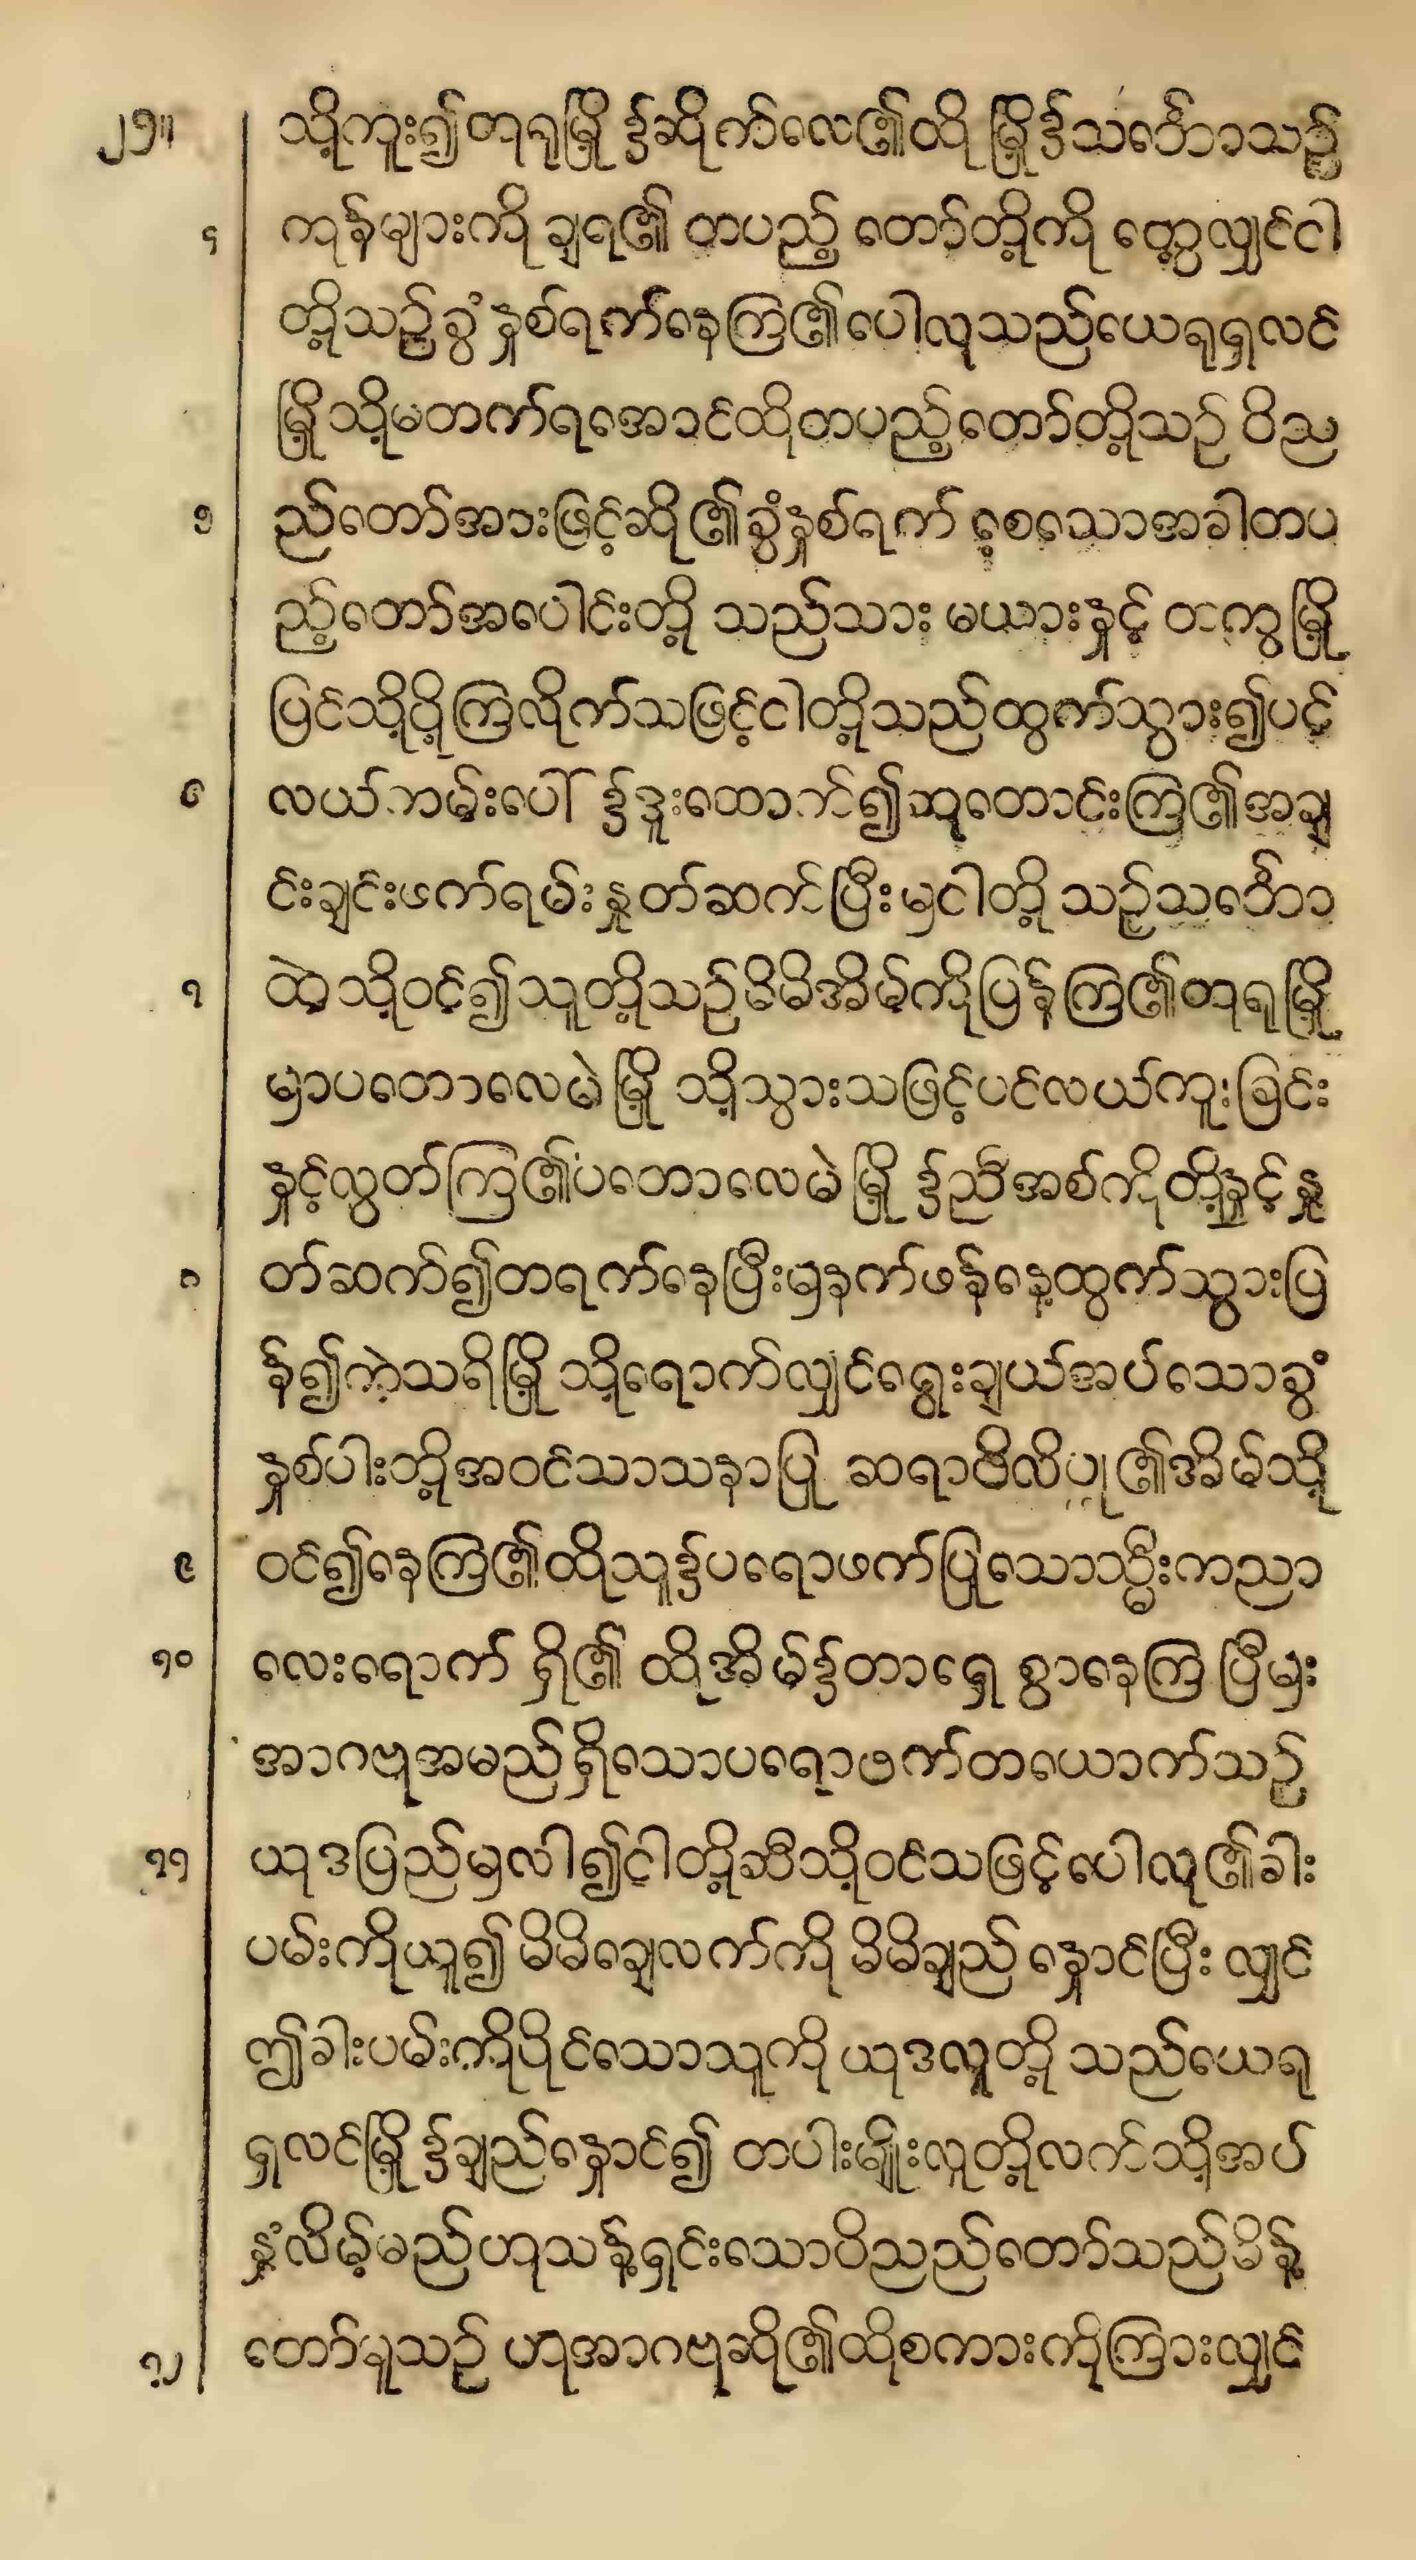 ၂၁။ သို့ကူး၍တုရုမြို့ဒ္ဒ်ဆိုက်လေ၏ထိုမြို့ဒ္ဒ်သင်္ဘောသည်
၄ ကုန်များကိုချရ၏ တပည့် တော်တို့ကို တွေ့လျှင်ငါ
တို့သည်ခွံနှစ်ရက်နေကြ၏ပေါလုသည်ယေရုရှလင်
မြို့သို့မတက်ရအောင်ထိုတပည့်တော်တို့သည် ဝိည
၅ ည်တော်အားဖြင့်ဆို၏ခွံနှစ်ရက် စေ့သောအခါတပ
ည့်တော်အပေါင်းတို့ သည်သား မယားနှင့် တကွမြို့
ပြင်သို့ပို့ကြလိုက်သဖြင့်ငါတို့သည်ထွက်သွား၍ပင်
၆ လယ်ကမ်းပေါ်ဒ္ဒ်ဒူးထောက်၍ဆုတောင်းကြ၏အချ
င်းချင်းဖက်ရမ်းနှုတ်ဆက်ပြီးမှငါတို့ သည်သင်္ဘော
၇ ထဲ့သို့ဝင့်၍သူတို့သည်မိမိအိမ့်ကိုပြန်ကြ၏တုရုမြို့
မှာပတောလေမဲမြို့ သို့သွားသဖြင့်ပင်လယ်ကူးခြင်း
နှင့်လွတ်ကြ၏ပတောလေမဲမြို့ ဒ္ဒ်ညီအစ်ကိုတို့နှင့်နှု
၈ တ်ဆက်၍တရက်နေပြီးမှနက်ဖန်နေ့ထွက်သွားပြ
န်၍ကဲ့သရိမြို့သို့ရောက်လျှင်ရွေးချယ်အပ်သောခွံ
နှစ်ပါးဘို့အဝင်သာသနာပြု ဆရာဖိလိပ္ပု၏အိမ်သို့
၉ ဝင်၍နေကြ၏ထိုသူဒ္ဒ်ပရောဖက်ပြုသောသ္မီးကညာ
၁၀ လေးရောက် ရှိ၏ ထိုအိမ်ဒ္ဒ်တာရှေ စွာနေကြ ပြီမှး
အာဂဗုအမည်ရှိသောပရောဖက်တယောက်သည်
၁၁ ယုဒပြည်မှလါ၍ငါတို့ဆီသို့ဝင်သဖြင့်ပေါလု၏ခါး
ပမ်းကိုယူ၍ မိမိချေလက်ကို မိမိချည်နှောင်ပြီး လျှင်
ဤခါးပမ်းကိုပိုင်သောသူကို ယုဒလူတို့ သည်ယေရု
ရှလင်မြို့ဒ္ဒ်ချည်နှောင်၍ တပါးမျိုးလူတို့လက်သို့အပ်
နှံ့လိမ့်မည်ဟုသန့်ရှင်းသောဝိညည်တော်သည်မိန့်
၁၂ တော်မူသည် ဟုအာဂဗုဆို၏ထိုစကားကိုကြားလျှင်